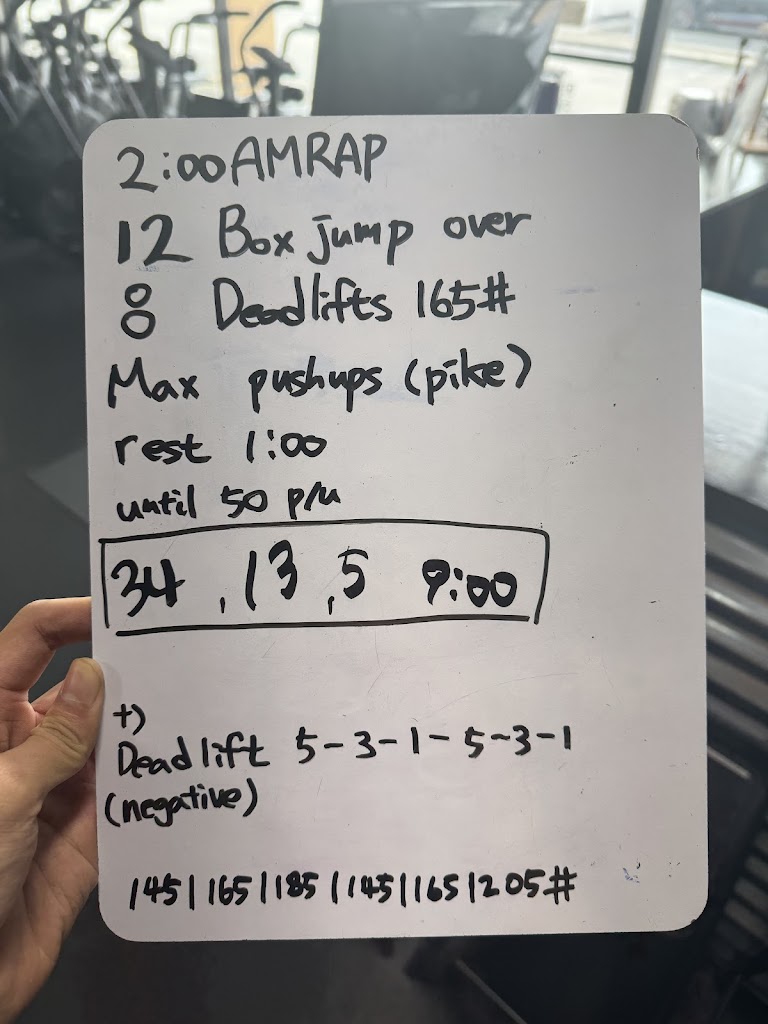 2:00 AMRAP
12 Box jump over
8 Deadlifts 165#
Max pushups (pike)
rest 1:00
until 50 p/u
34, 13, 5 9:00
+)
Deadlift 5-3-1-5-3-1
(negative)
145|165|185|145|165|205#